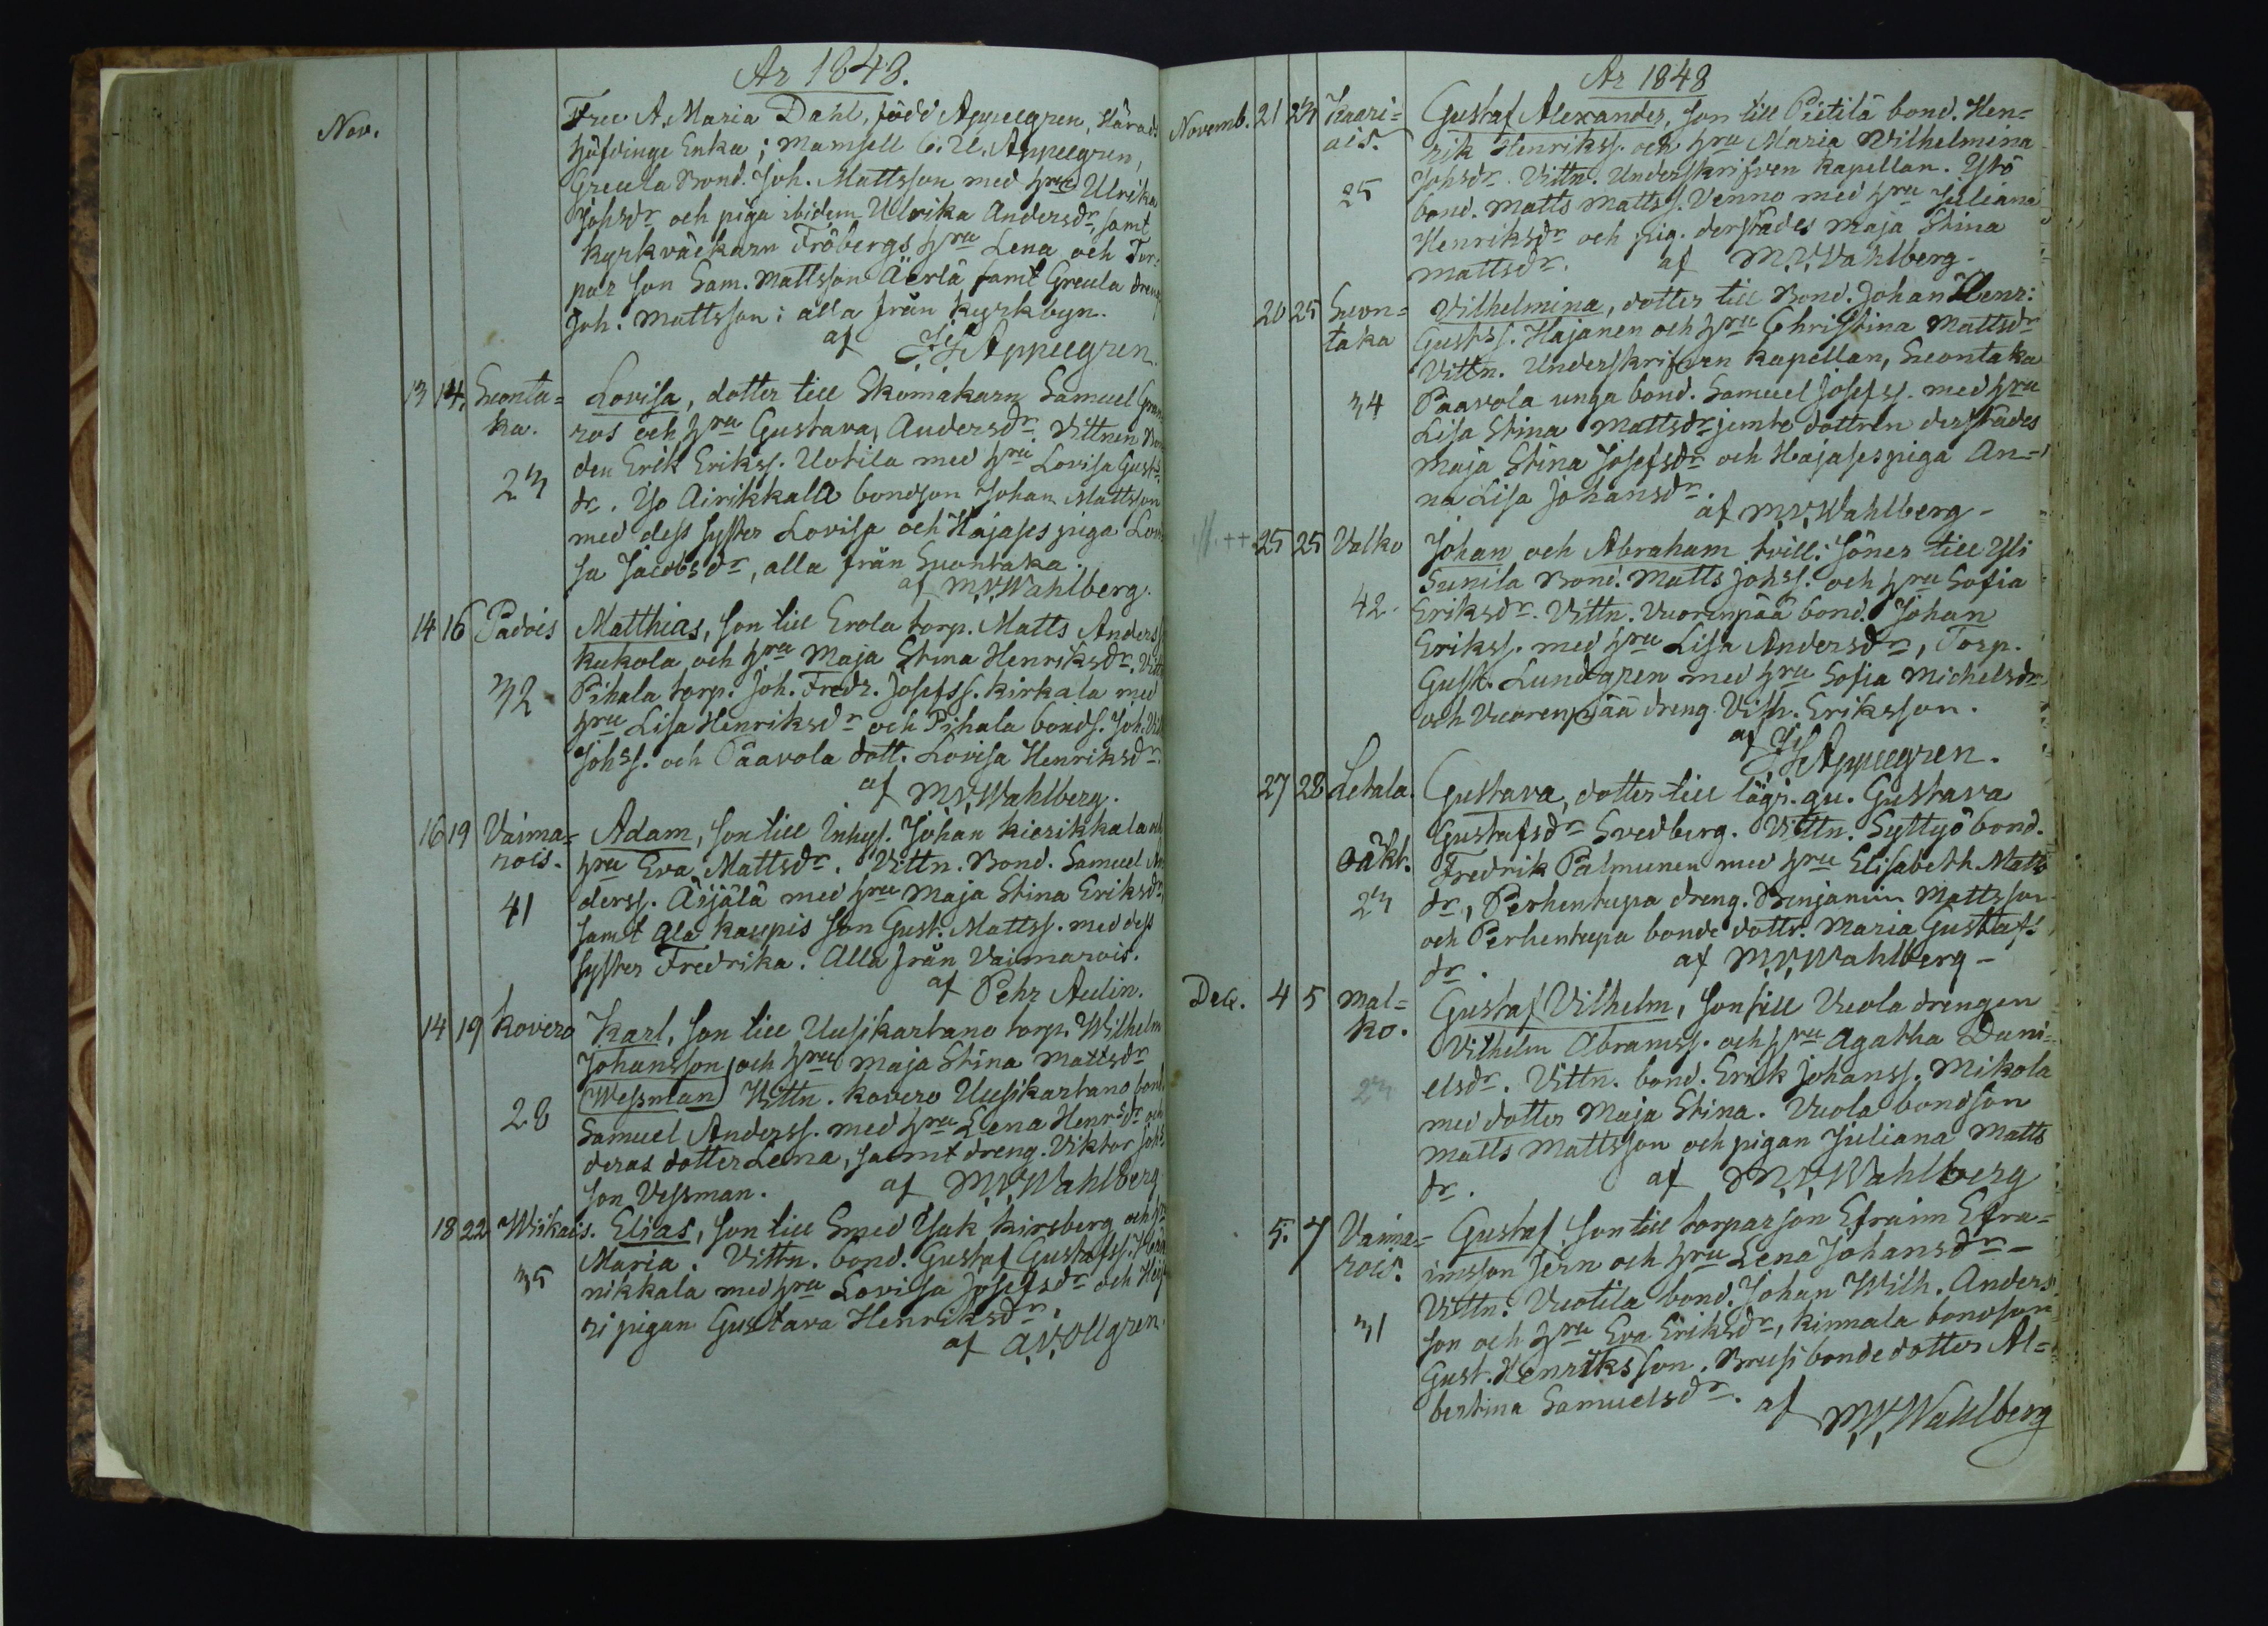 År 1848.
Nov.
Fru A. Maria Dahl, född Appelgren, Härads
höfdinge Enka; Mamsell C. U. Appelgren,
Greula Bond. Joh. Mattsson med hru Ulrika
Johsdr och piga ibidem Ulrika Andersdr, samt
kyrkväckarn Fröbergs hru Lena och Tor-
par son Sam. Mattsson Äerlä samt Greula dreng
Joh. Mattsson; alla från kyrkbyn.
af Appelgren.
13 14. Suonta=
ka.
23
Lovisa, dotter till Skomakarn Samuel
ros och hru Gustava Andersdr. Vittnen
den Erik Erikss. Uotila med hru Lovisa Gusts
dr. Iso Airikkala bondson Johan Mattsson
med dess syster Lovisa och Hajases piga Lovi
sa Jacobsdr, alla från Suontaka.
af M.W. Wahlberg.
14 16 Padois
32
Matthias, son till Erola torp. Matts Anderss
kukola och hru Maja Stina Henriksdr. Vittn
Pihala torp. Joh. Fredr. Josefss. kirkala med
hru Lisa Henriksdr och Pihala bonds. Joh.
Johss. och Paavola dott. Lovisa Henriksdr.
af M.W. Wahlberg.
16 19 Vaima=
rois.
41
Adam, son till Inhys. Johan kierikkala och
hru Eva Mattsdr. Vittn. Bond. Samuel An
derss. Äijälä med hru Maja Stina Eriksdr,
samt Ala kaupis son Gust. Mattss. med dess
syster Fredrika. Alla från Vaimarois.
af Pehr Aulin.
14 19 kovero
28
Karl, son till Uusikartano torp. Wilhelm
Johansson och hru Maja Stina Mattsdr
(Wessman) Vittn. kovero Uusikartano bond
Samuel Anderss. med hru Lena Henrsdr och
deras dotter Lena, samt dreng. Viktor Johs
son Vessman. af M.W. Wahlberg
18 22 Wiikais.
35
Elias, son till Smed Isak kirsberg och hru
Maria. Vittn. bond. Gustaf Gustafss.
nikkala med hru Lovisa Josefsdr och
ri pigan Gustava Henriksdr.
af A.W. Ollgren.
År 1848
Novemb. 21 23 Kaari=
ais.
25
Gustaf Alexander, son till Pietilä bond. Hen=
rik Henrikss. och hru Maria Vilhelmina
Johsdr. Vittn. Underskrifven kapellan. Yhö
bond. Matts Mattss. Venno med hru Juliana
Henriksdr och pig. derstädes Maja Stina
Mattsdr. af M.W. Wahlberg.
20 25 Suon=
taka
34
Vilhelmina, dotter till Bond. Johan Henr:
Gustss. Hajanen och hru Christina Mattsdr
Vittn. Underskrifven kapellan, Suontaka
Paavola unga bond. Samuel Josefss. med hru
Lisa Stina Mattsdr jemte dottren derstädes
Maja Stina Josefsdr och Hajases piga An=
na Lisa Johansdr.
af M.W. Wahlberg -
++ 25 25 Valko
42.
Johan och Abraham tvill: söner till Yli
Sunila Bond. Matts Johss. och hru Sofia
Eriksdr. Vittn. Vuorenpää bond. Johan
Erikss. med hru Lisa Andersdr, Torp.
Gust. Lundgren med hru Sofia Michelsdr
och Vuorenpää dreng. Vilh. Eriksson.
af Appelgren.
27 28 Letala.
oäkt.
23
Gustava, dotter till lägr. qv. Gustava
Gustafsdr Svedberg. Vittn. Syttyö bond.
Fredrik Palmunen med hru Elisabeth Matts
dr, Perhentupa dreng. Benjamin Mattsson
och Perhentupa bonde dottr. Maria Gustafs
dr. af M.W. Wahlberg -
Dec. 4 5 Mal=
ko.
23
Gustaf Vilhelm, son till Vuola drengen
Vilhelm Abramss. och hru Agatha Dani=
elsdr. Vittn. bond. Erik Johanss. Mikola
med dotter Maja Stina. Vuola bondson
Matts Mattsson och pigan Juliana Matts
dr. af M.W. Wahlberg
5. 7 Vaima=
rois.
31
Gustaf son till torparson Efraim Efra=
imsson Jern och hru Lena Johansdr -
Vittn. Vuotila bond. Johan Wilh. Anders
son och hru Eva Eriksdr, kinnala bondson
Gust. Henriksson. Brusi bonde dotter Al=
bertina Samuelsdr. af M.W. Wahlberg